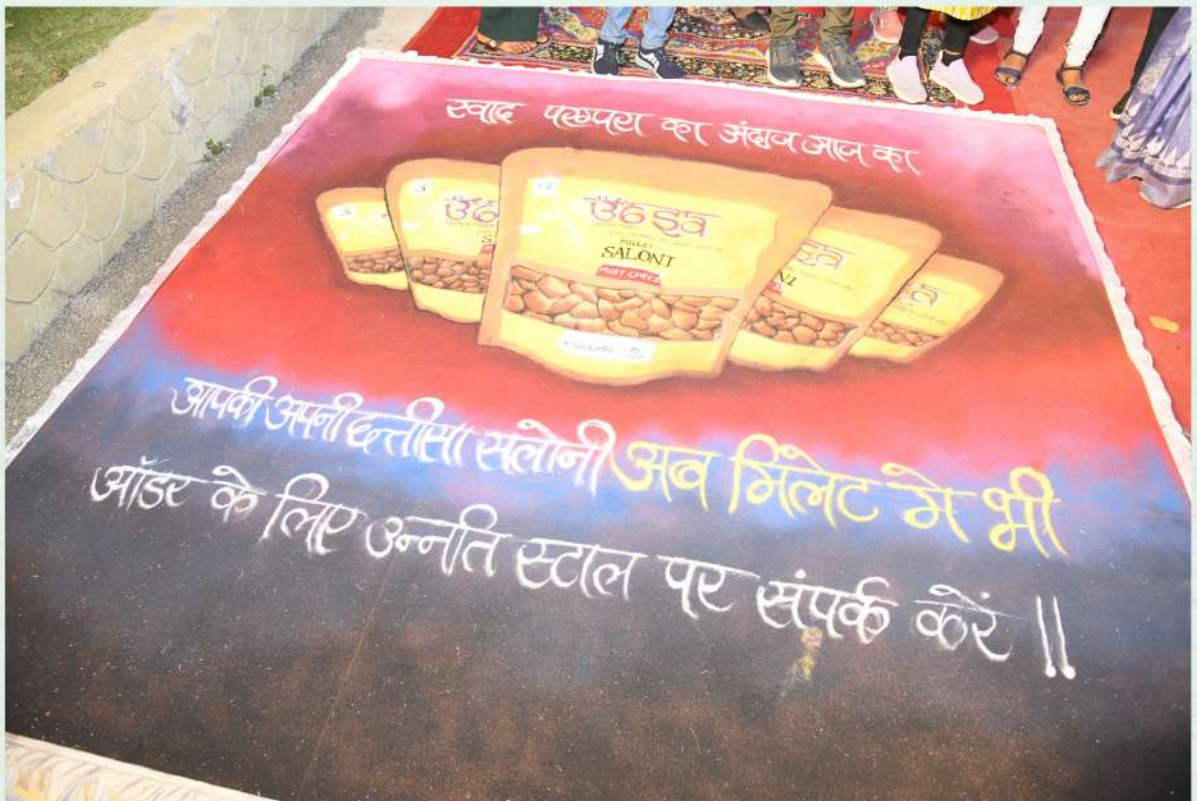 स्वाद परम्परा का अंदाज आज का
MILLET
SALONI
आपकी अपनी छत्तीसा सलोनी अब मिलेट मे भी
ऑडर के लिए उन्नति स्टाल पर संपर्क करें ||